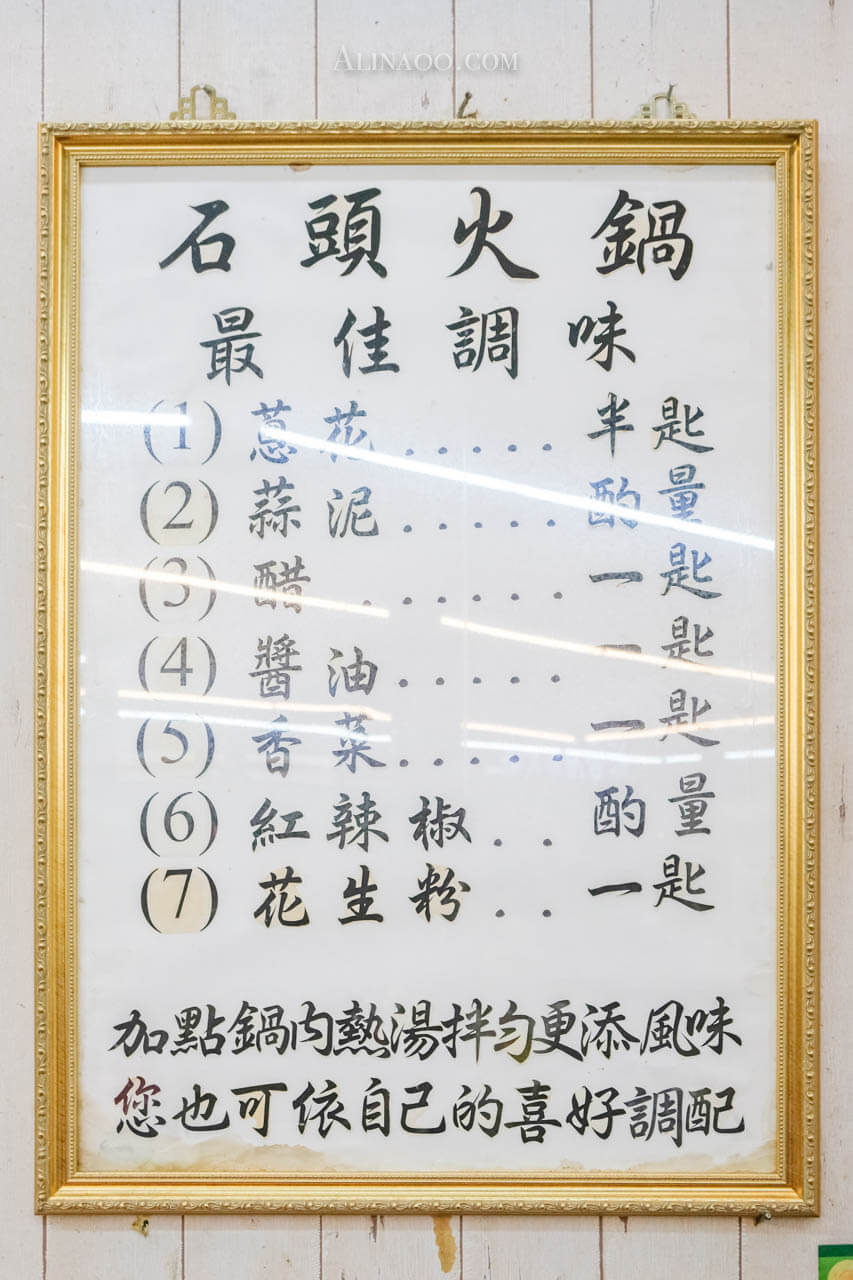 ALINAOO.COM
石頭火鍋
最佳調味
(1) 蔥花...... 半匙
(2) 蒜泥...... 酌量
(3) 醋....... 一匙
(4) 醬油...... 一匙
(5) 香菜...... 一匙
(6) 紅辣椒.. 酌量
(7) 花生粉.. 一匙
加點鍋內熱湯拌勻更添風味
您也可依自己的喜好調配